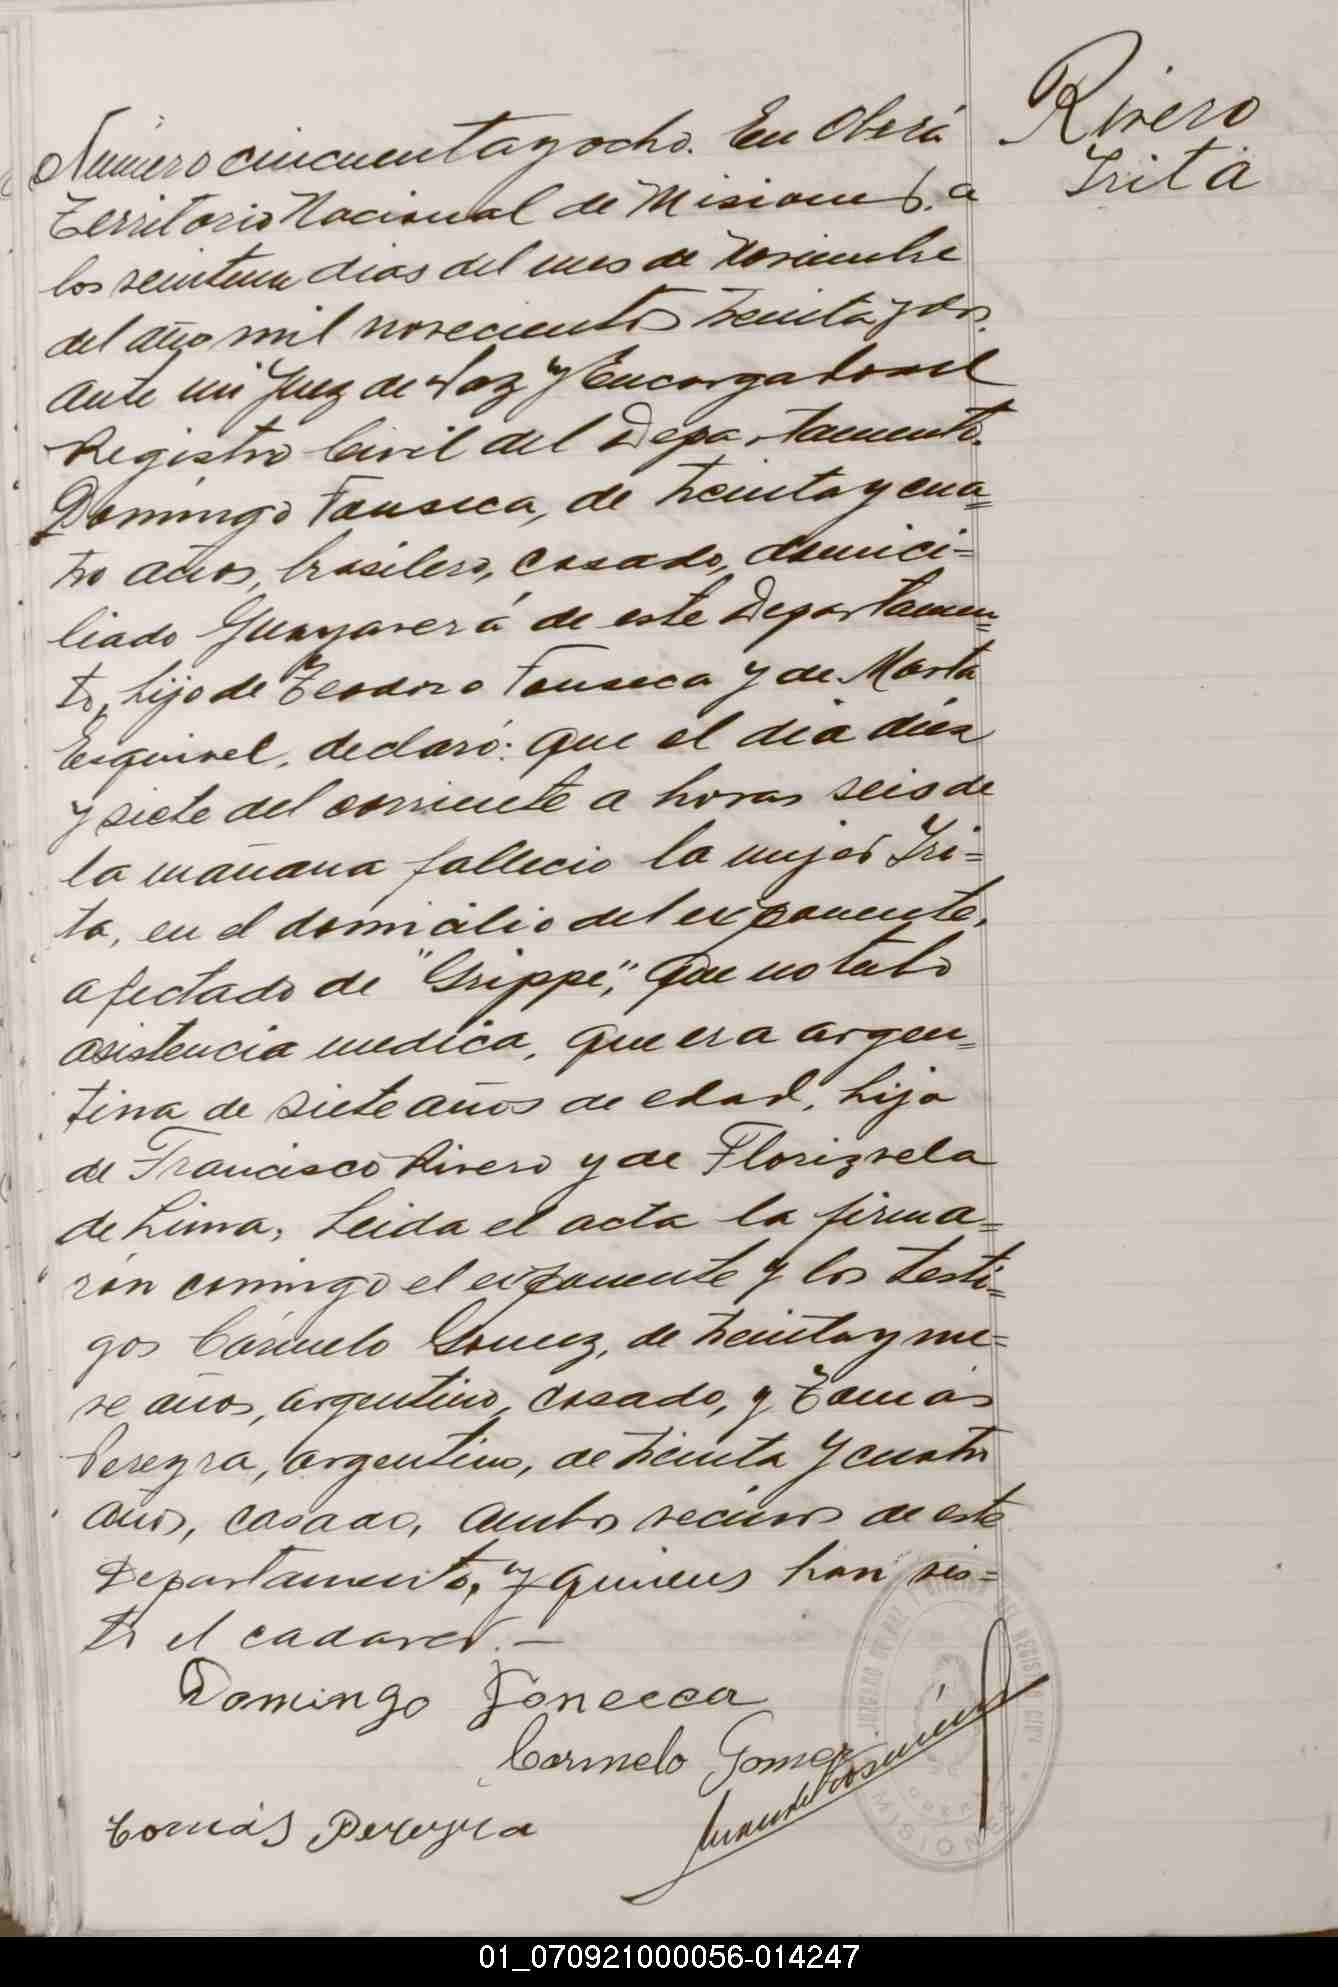 Rivero
Irita
Número cincuenta y ocho. En Oberá
Territorio Nacional de Misiones, a
los veintiun dias del mes de Noviembre
del año mil novecientos treinta y dos.
ante mi Juez de Paz y Encargado del
Registro Civil del Departamento.
Domingo Fonseca, de treinta y cua=
tro años, brasilero, casado, domici=
liado Guayaverá de este Departamen=
to, hijo de Teodoro Fonseca y de Marta
Esquivel, declaró: Que el dia diez
y siete del corriente a horas seis de
la mañana fallecio la mujer Iri=
ta, en el domicilio del exponente,
afectado de "Grippe", Que no tubo
asistencia medica, que era argen=
tina de siete años de edad, hija
de Francisco Rivero y de Florizvela
de Lima, Leida el acta la firma=
rón comingo el exponente y los testi=
gos Cármelo Gomez, de treinta y nue=
ve años, argentino, casado, y Tomás
Pereyra, argentino, de treinta y cuatro
años, casado, ambos vecinos de este
Departamento, y quienes han vis=
to el cadaver.—
Domingo Fonecca
Carmelo Gomez
Tomás Pereyra
JUZGADO DE PAZ Y OFICINA DEL REGISTRO CIVIL
OBERÁ
MISIONES
01_070921000056-014247